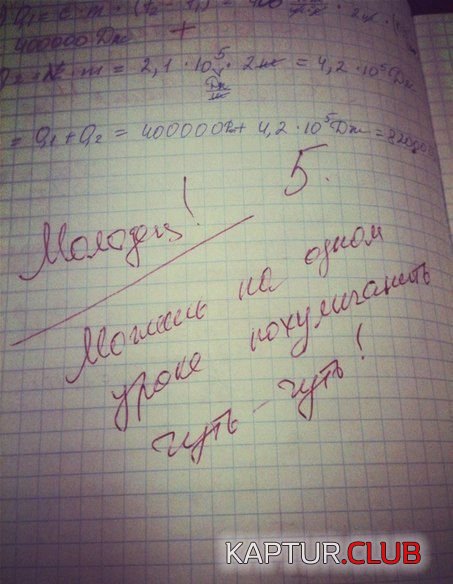 Q₁ = c · m · (t₂ - t₁) = 400
400000 Дж
· m = 2,1 · 10⁵ Дж/кг · 2 кг = 4,2 · 10⁵ Дж
= Q₁ + Q₂ = 400000 Дж + 4,2 · 10⁵ Дж = 82000
5.
Молодец!
Можешь на одном
уроке похулиганить
чуть-чуть!
KAPTUR.CLUB